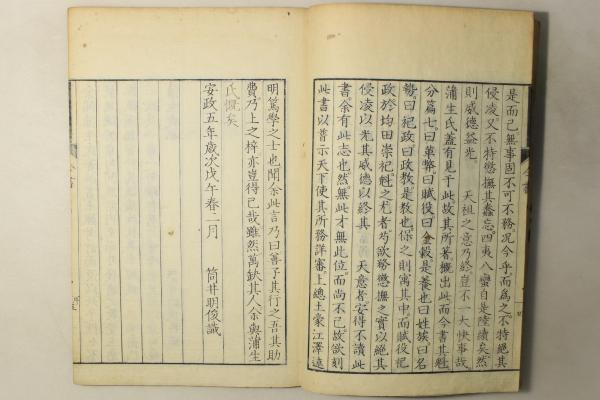 是而已無事固不可不務況今乎而為之不持絕其
侵凌又不持懲撫其蠢忘四夷八蠻自是陸續矣然
則威德益光　天祖之意乃終豈不一大快事哉
蒲生氏蓋有見于此故其所著概出此而今書其魁
分篇七曰革弊曰賦役曰金穀是養也曰姓族曰名
勢曰祀政曰政教是教也保之則寓其中而賦役記
政於均田崇祀魁之尤者芍欲舉懲撫之實以絕其
侵凌以光其威德以終其　天意者安得不讀此
書余有此志也然無此才無此位而尚不已故欲刻
此書以普示天下使其所務詳審上總土豪江澤遠
明篤學之士也聞余此言乃曰善予其行之吾其助
費乃上之梓亦豈得已哉雖然萬缺其人余與蒲生
氏慨矣
安政五年歲次戊午春二月　筒井明俊識